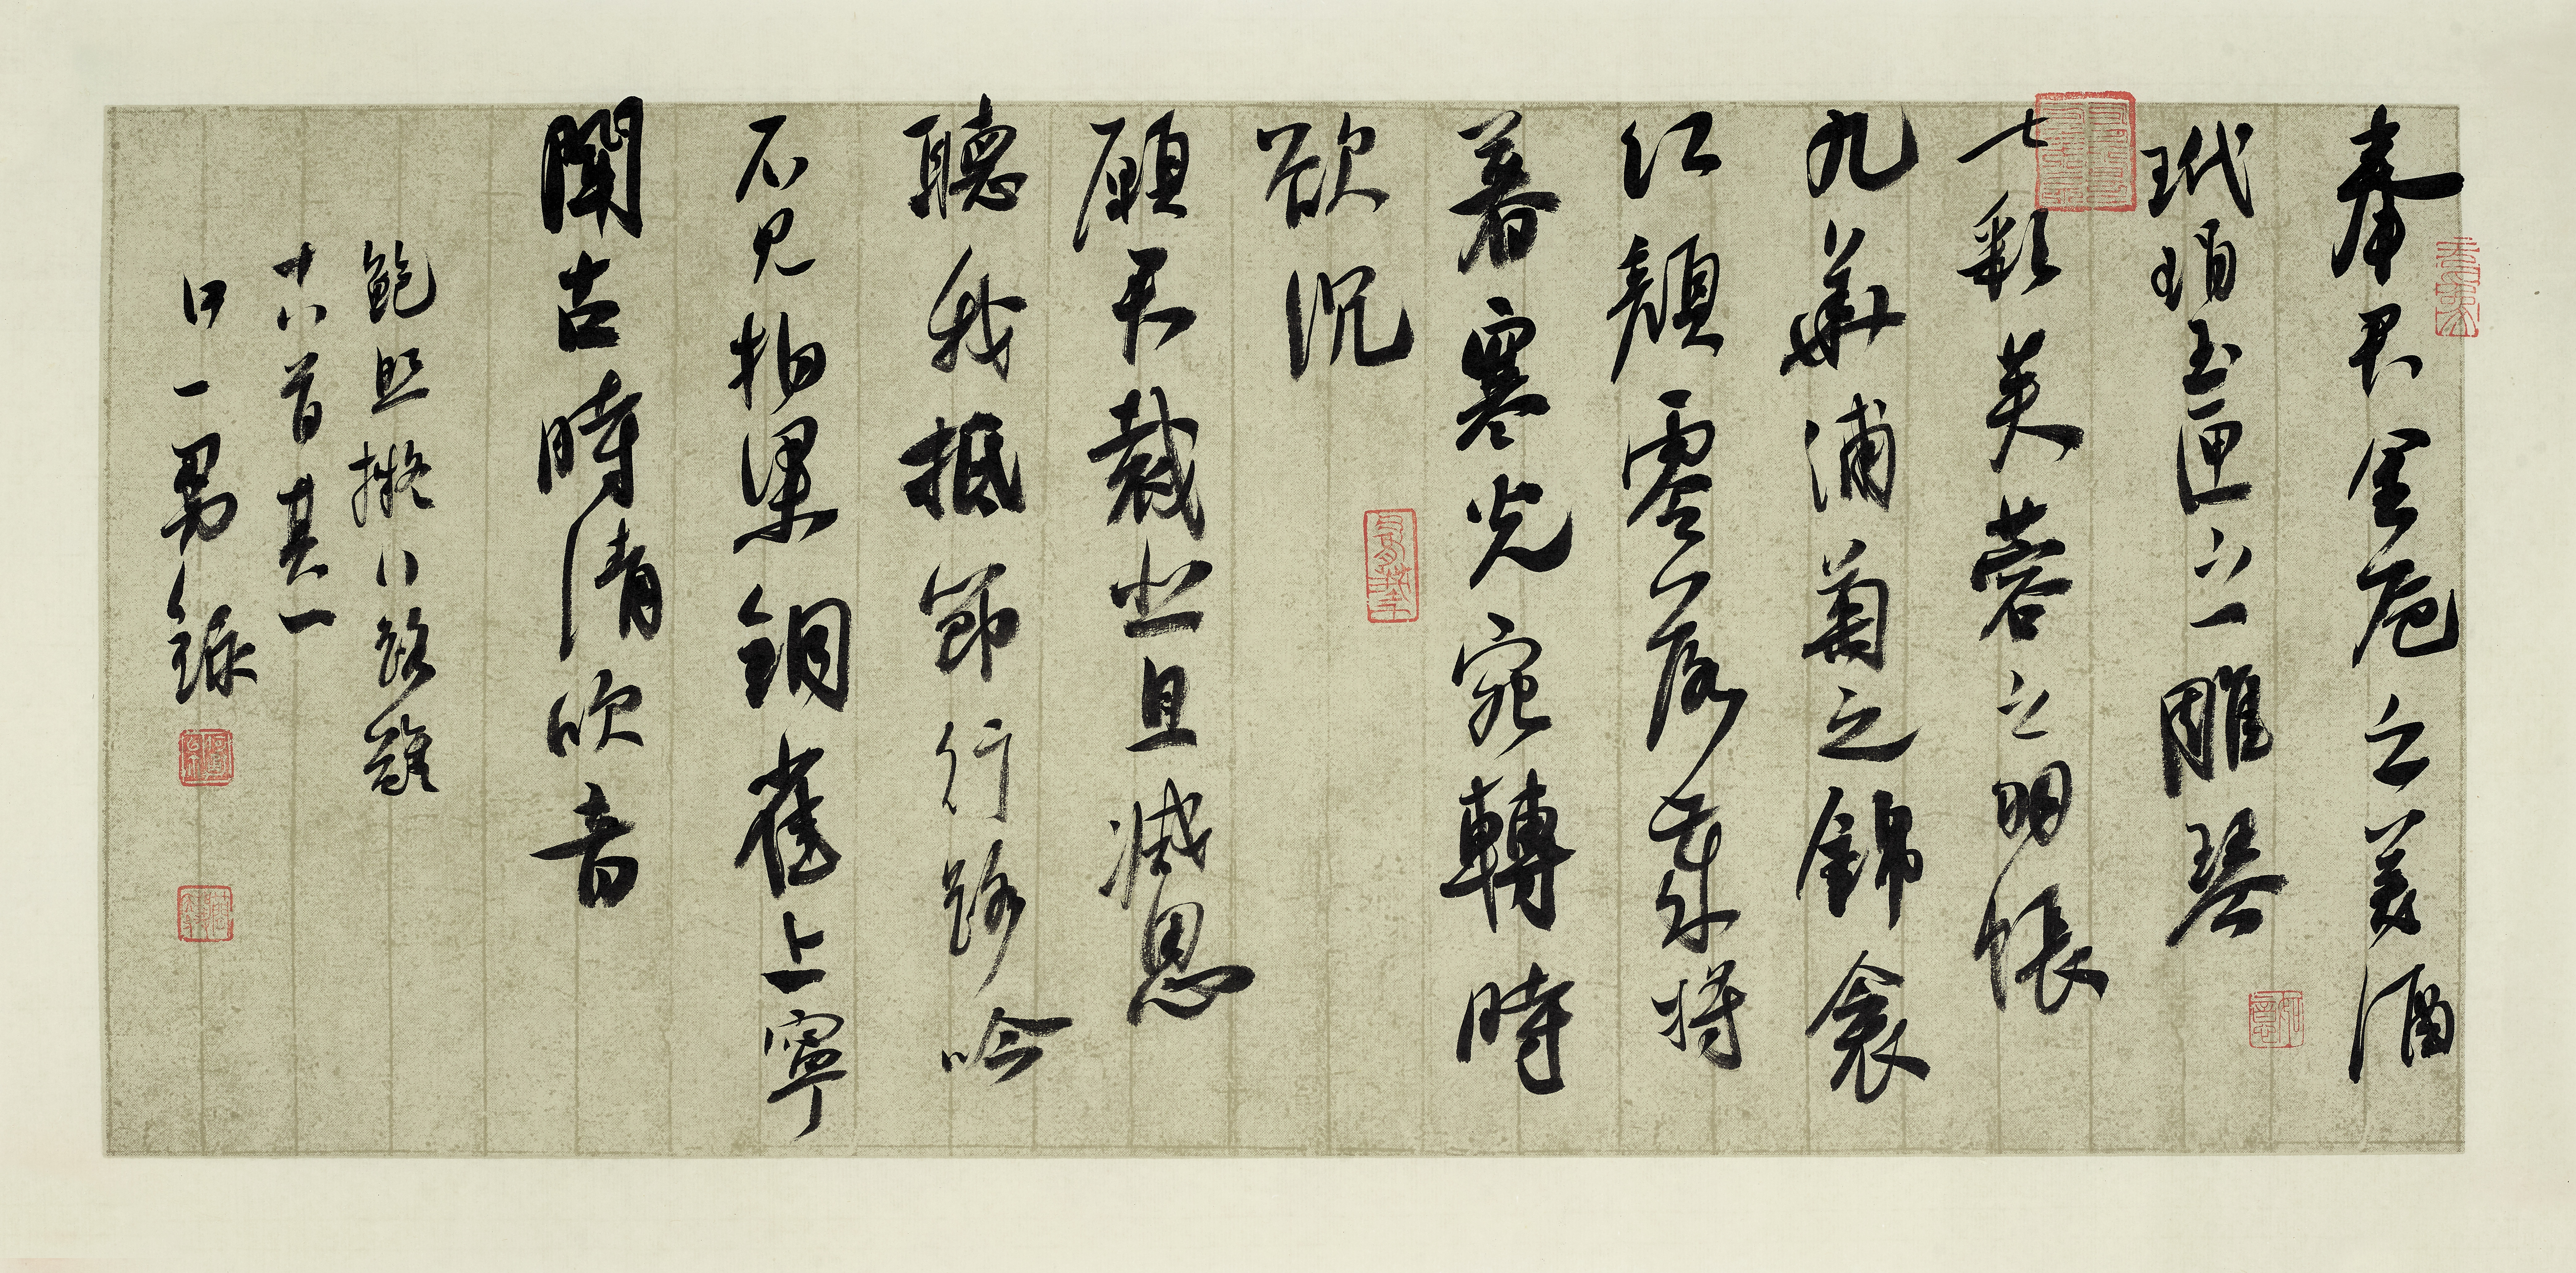 奉君金卮之美酒
玳瑁玉匣之雕琴
七彩芙蓉之羽帳
九華蒲萄之錦衾
紅顏零落歲將
暮寒光宛轉時
欲沉
願君裁悲且減思
聽我抵節行路吟
不見柏梁銅雀上寧
聞古時清吹音
鮑照擬行路難
十八首其一
一男錄